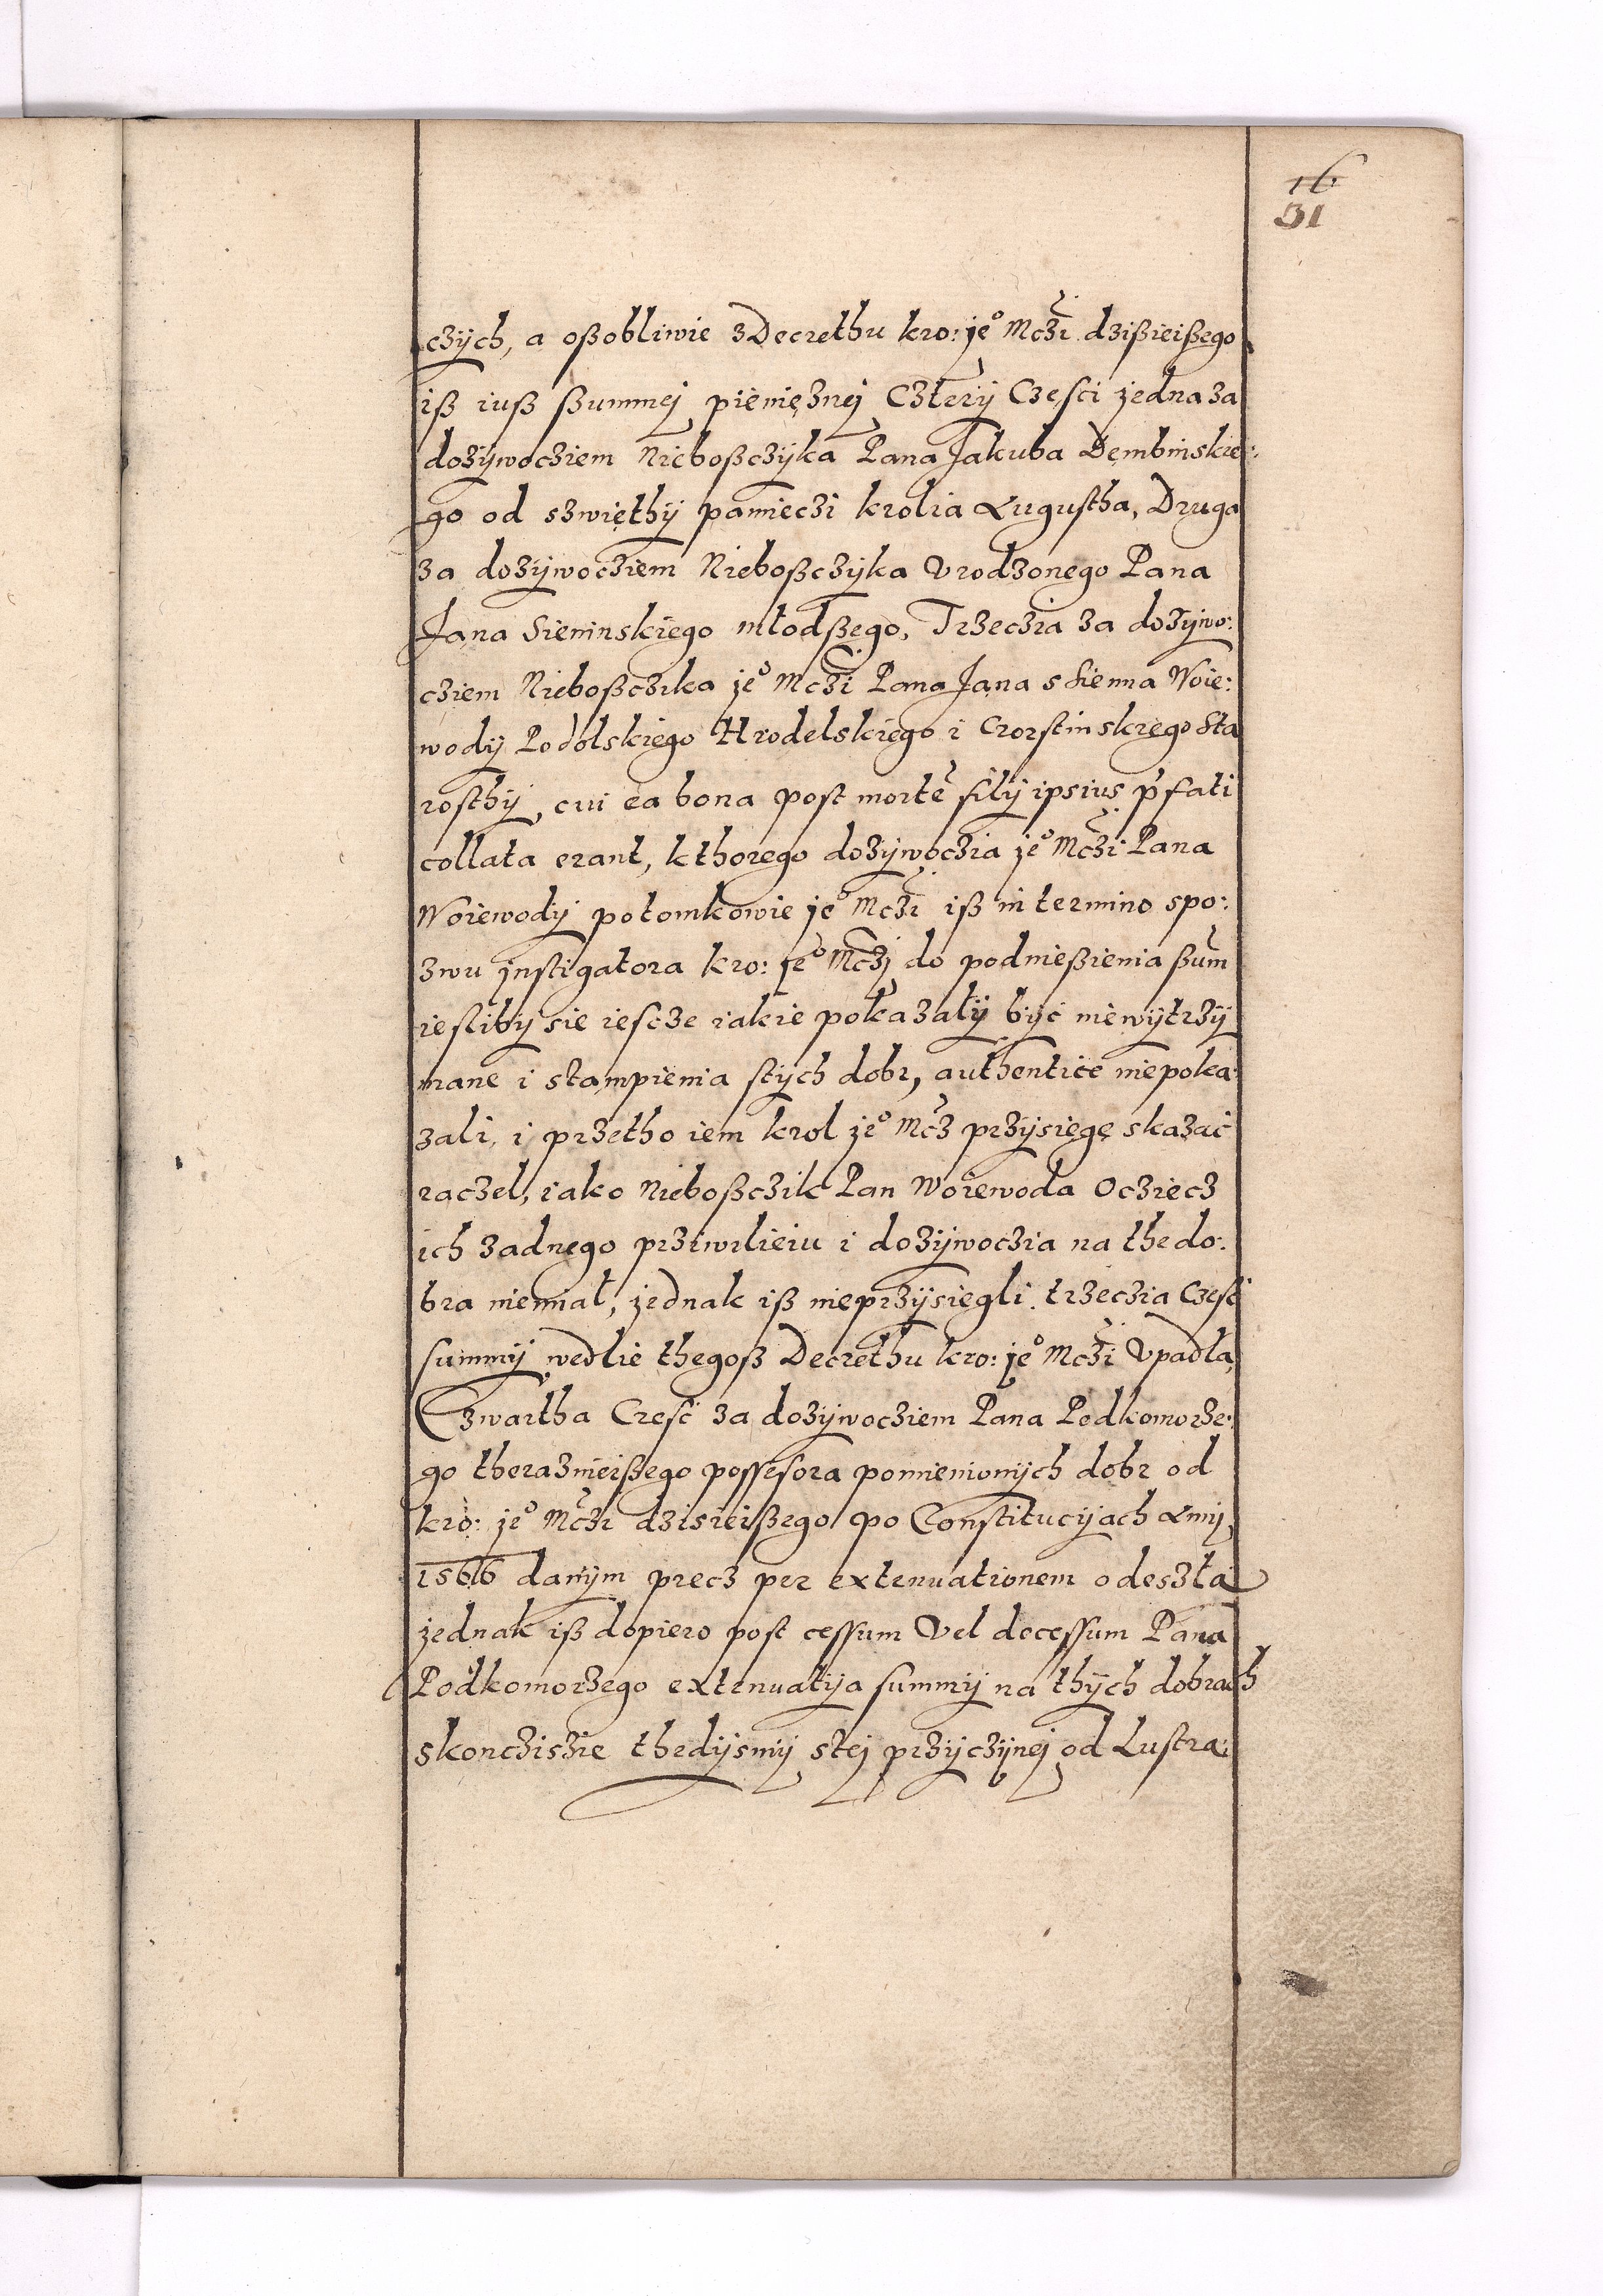 16
31
czÿch, a oßobliwie z Decrethu kro: jeº Mczi dzißieißego
iß iuß ßummej pieniężnej Czterÿ Części jedna za
dożÿwocziem Nieboßczÿka Pana Jakuba Dembinskie:
go od szwięthÿ pamieczi krolia Augustha, Druga
za dożÿwocziem Nieboßczÿka Vrodzonego Pana
Jana Sieninskiego młodßego, Trzeczia za dożÿwo:
cziem Nieboßczika jeº Mczi Pana Jana s Sienna Woie:
wodÿ Podolskiego Hrodelskiego i Crorstinskiego Sta
rosthÿ, cui ea bona post mortē filÿ ipsius p̄fati
collata erant, kthorego dożÿwoczia jeº Mczi Pana
Woiewodÿ potomkowie jeº Mczi iß in termino spo:
zwu jnstigatora kro: jeº Mczj do podnießienia ßum
iestibÿ sie iescze iakie pokazalÿ bÿć niewÿtrzÿ
mane i stampienia stÿch dobr, authentice niepoka:
zali, i przetho iem krol jeº Mcz przÿsięgę skazać
raczel, iako Nieboßczik Pan Woiewoda Oczięcz
ich żadnego prziwilieiu i dożÿwoczia na the do:
bra niemial, jednak iß nieprzÿsięgli. trzeczia Czesć
summÿ wedlie thegoß Decrethu kro: jeº Mczi Vpadła,
Czwartha Czesć za dożÿwocziem Pana Podkomorze:
go theraznieißego possesora pomienionÿch dobr od
kro: jeº Mczi dzisieißego po Constitucÿjach Anni
1566 danÿm precz per extenuationem odeszła
jednak iß dopiero post cessum Vel decessum Pana
Podkomorzego extenuatÿa summÿ na thÿch dobrach
skonczisie thedÿsmÿ stej przÿczÿnej od Lustra: